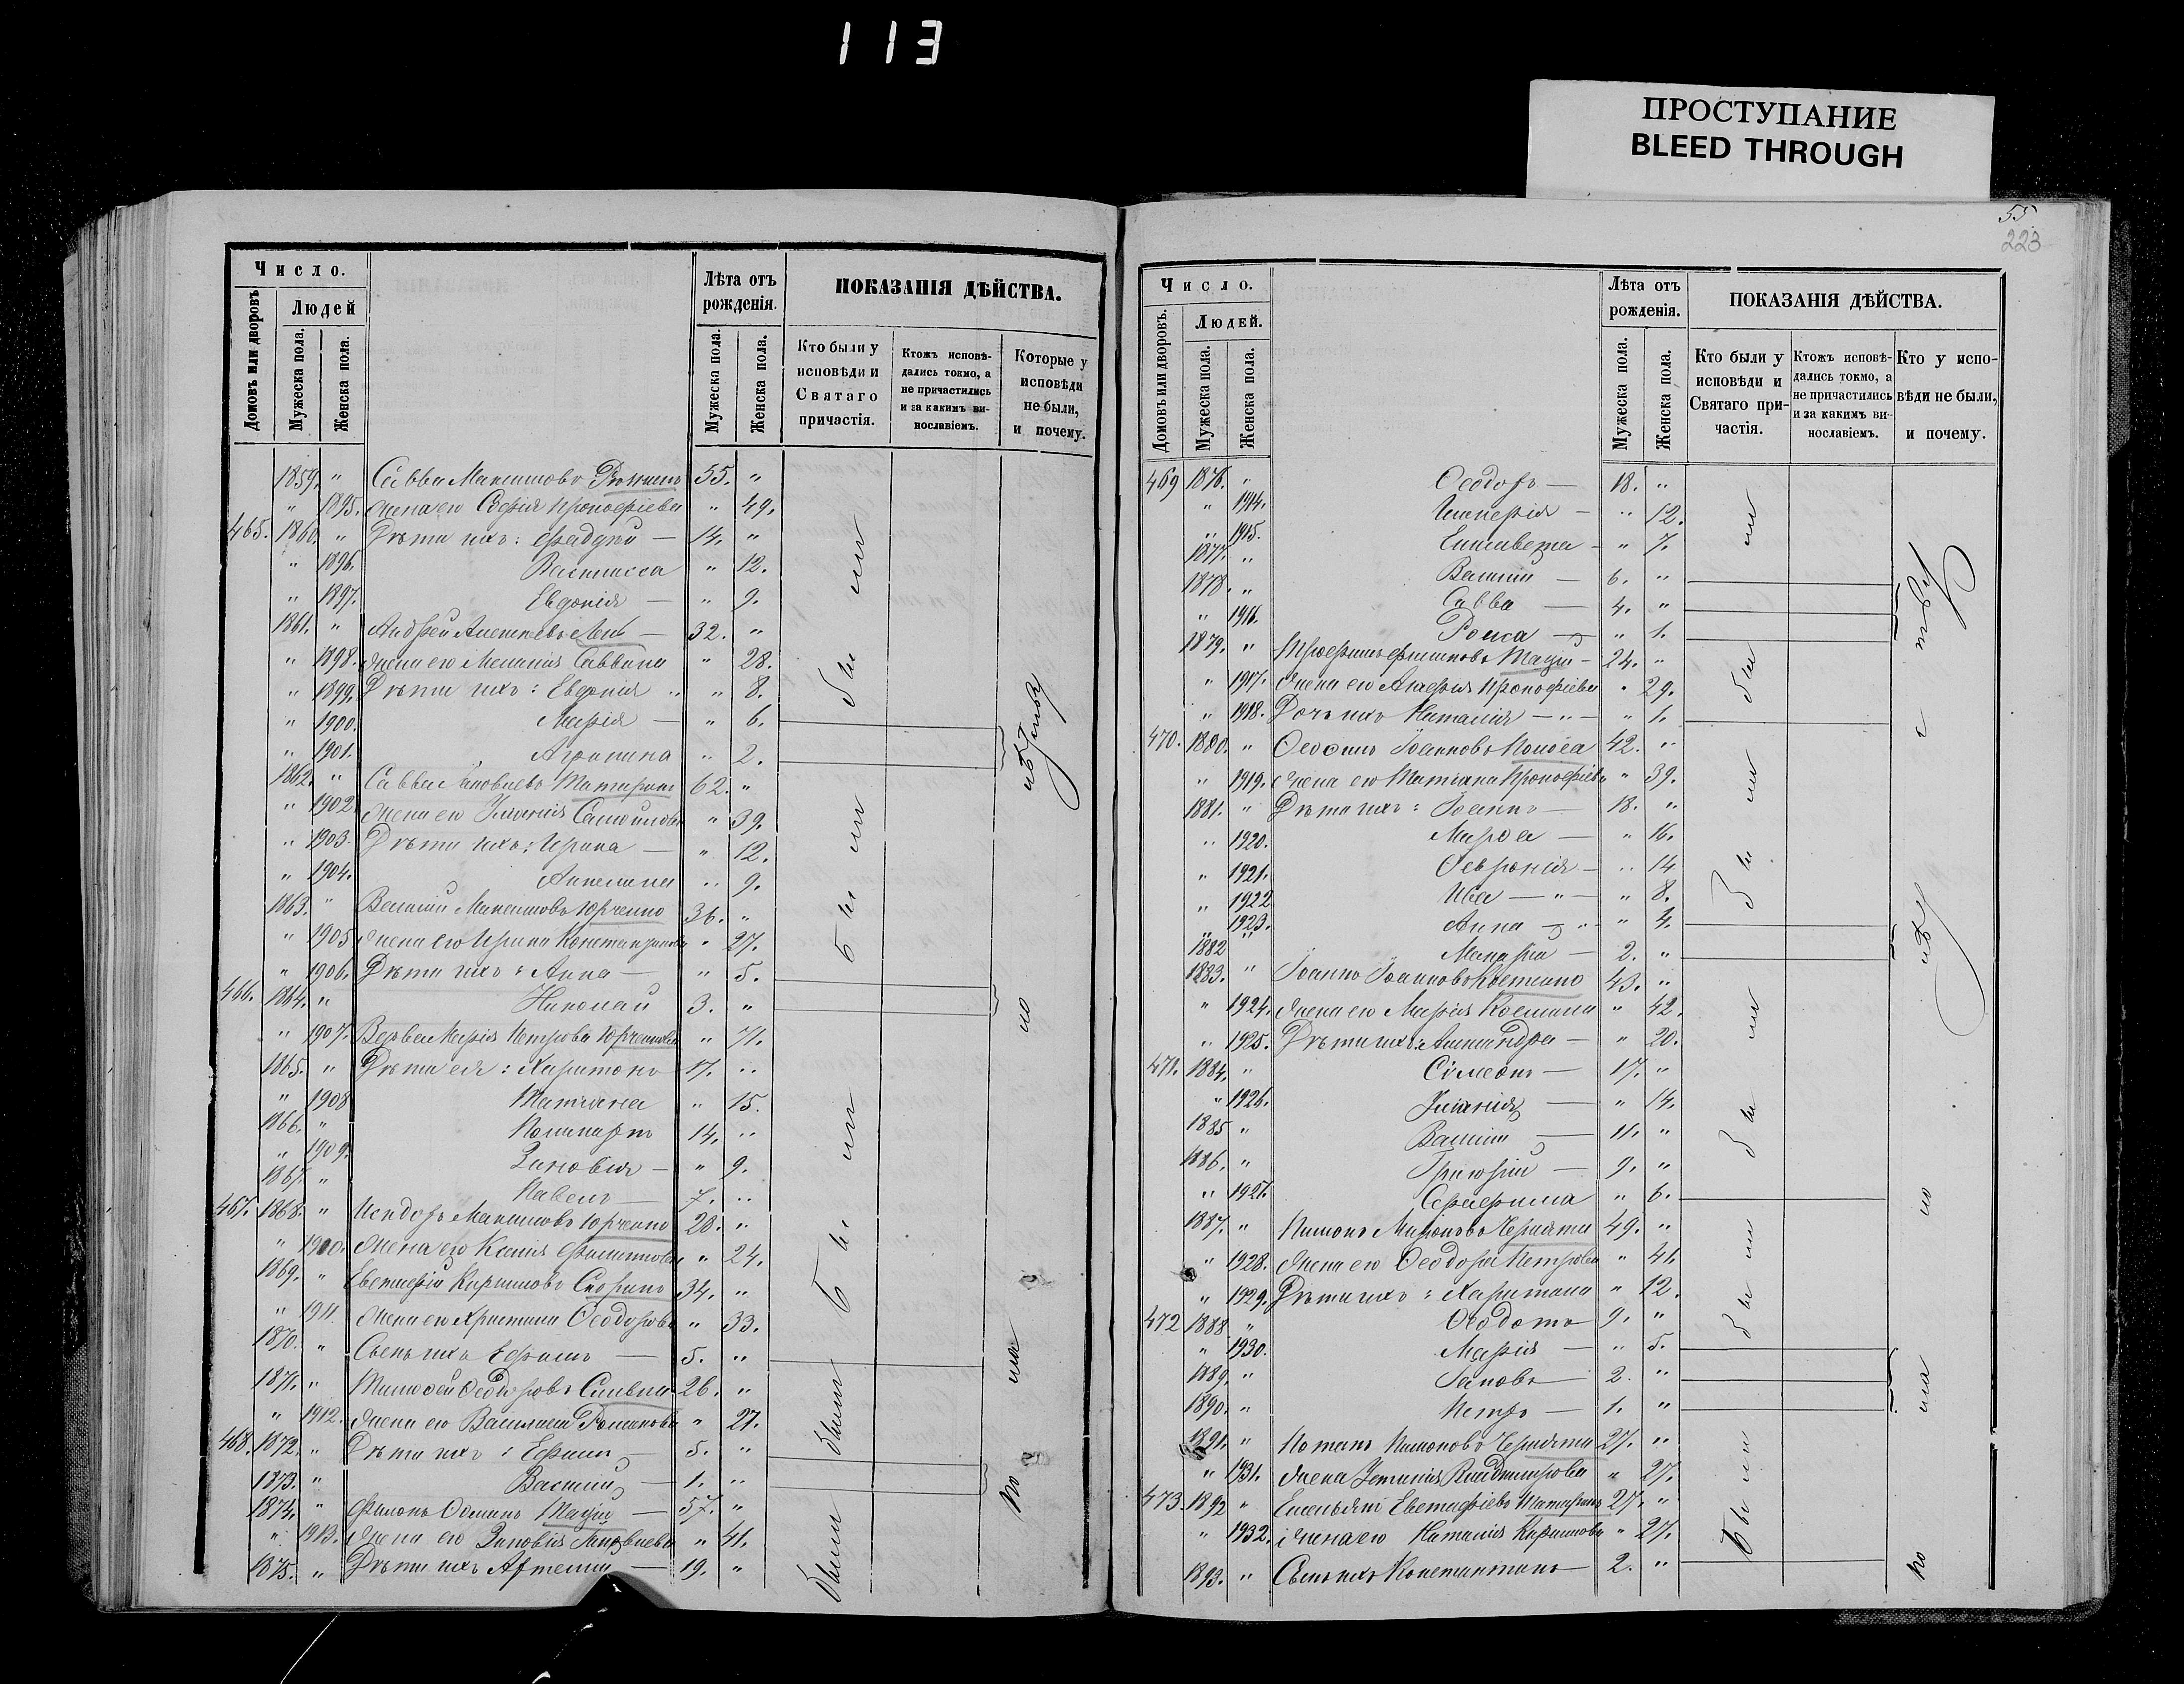 113
ПРОСТУПАНИЕ
BLEED THROUGH
Число.
Людей
Домовъ или дворовъ
Мужеска пола.
Женска пола.
Лѣта отъ рожденія.
Мужеска пола.
Женска пола.
ПОКАЗАНІЯ ДѢЙСТВА.
Кто были у исповѣди и Святаго причастія.
Ктожъ исповѣ-дались токмо, а не причастились и за какимъ ви-нославіемъ.
Которые у исповѣди не были, и почему.
1859. " Савва Максимовъ 55. "
" 1895. жена его Софія Прокофіева " 49.
465. 1860. " Дѣти ихъ: Фаддей — 14. "
" 1896. Василисса " 12.
" 1897. Евдокія — " 9.
1861. " Андрей Алексѣевъ — 32. "
" 1898. жена его Меланія Саввина " 28.
" 1899. Дѣти ихъ: Евдокія " " 8.
" 1900. Марія — " 6.
" 1901. Агрипина " 2.
1862. " Савва Іаковлевъ Татаринъ 62. "
" 1902. жена его Іуліанія Самойлова " 39.
" 1903. Дѣти ихъ: Ирина — " 12.
" 1904. Ангелина " 9.
1863. " Василій Максимовъ Юрченко 36. "
" 1905 жена его Ирина Константинова " 27.
" 1906. Дѣти ихъ: Анна — " 5.
466. 1864. " Николай 3. "
" 1907. Вдова Марія Петрова Юрченкова " 71.
1865. " Дѣти ея: Харитонъ 17. "
" 1908 Татіана " 15.
1866. " Поликарпъ 14. "
" 1909. Зиновія — " 9.
1867. " Павелъ — 7. "
467. 1868. " Исидоръ Максимовъ Юрченко 20. "
" 1910. жена его Ксенія Филиппова " 24.
1869. " Евстафій Кирилловъ Скоринъ 34. "
" 1911. жена его Христина Ѳеодорова " 33.
1870. " Сынъ ихъ Ефимъ — 5. "
1871. " Тимоѳей Ѳеодоровъ 26. "
" 1912. жена его Василиса Романова " 27.
468. 1872. " Дѣти ихъ: Ефимъ — 5. "
1873. " Василій — 1. "
1874. " Филонъ Ѳоминъ Мацій — 57. "
" 1913. жена его Зиновія Іаковлева " 41.
1875. " Дѣти ихъ Артемій — 19. "
55.
223
Число.
Людей.
Домовъ или дворовъ.
Мужеска пола.
Женска пола.
Лѣта отъ рожденія.
Мужеска пола.
Женска пола.
ПОКАЗАНІЯ ДѢЙСТВА.
Кто были у исповѣди и Святаго при-частія.
Ктожъ исповѣ-дались токмо, а не причастились и за какимъ ви-нославіемъ.
Кто у испо-вѣди не были, и почему.
469 1876. " Ѳеодоръ — 18. "
" 1914. Гликерія — " 12.
" 1915. Елисавета — " 7.
1877. " Василій — 6. "
1878. " Савва — 4. "
" 1916. Раиса — " 1.
1879. " Трофимъ Филиповъ Мацій — 24. "
" 1917. жена его Агафія Прокофіева " 29.
" 1918. Дочь ихъ Наталія — " — " 1.
470. 1880. " Іоанновъ 42. "
" 1919. жена его Татіана Прокофіева " 39.
1881. " Дѣти ихъ: Іоаннъ — 18. "
" 1920. Марѳа — " 16.
" 1921. Ѳевронія — " 14
" 1922 Ива — " — " 8.
" 1923. Анна — " " 4.
1882 Макарій — 2. "
1883. " Іоаннъ Іоанновъ Костенко 43. "
" 1924. жена его Марія Косьмина " 42.
" 1925. Дѣти ихъ: Александра — " 20.
471. 1884. " Сімеонъ — 17. "
" 1926. Іуліанія — " 14.
1885 " Василій — 11. "
1886. " Григорій — 9. "
" 1927. Серафима " 6.
1887. " Пимонъ Мироновъ 49. "
" 1928. жена его Ѳеодора Петрова " 41.
" 1929. Дѣти ихъ: Харитина " 12.
472 1888 " Ѳеодотъ 9. "
" 1930. Марія — " 5.
1889. " Іаковъ — 2. "
1890. " Петръ — 1. "
1891. " Потапъ Пимоновъ 27. "
" 1931. жена Іустинія Владимирова " 27.
473. 1892 " Емельянъ Евстафіевъ Татаринъ 27. "
" 1932. жена его Наталія Кириллова " 27.
1893. " Сынъ ихъ Константинъ — 2. "